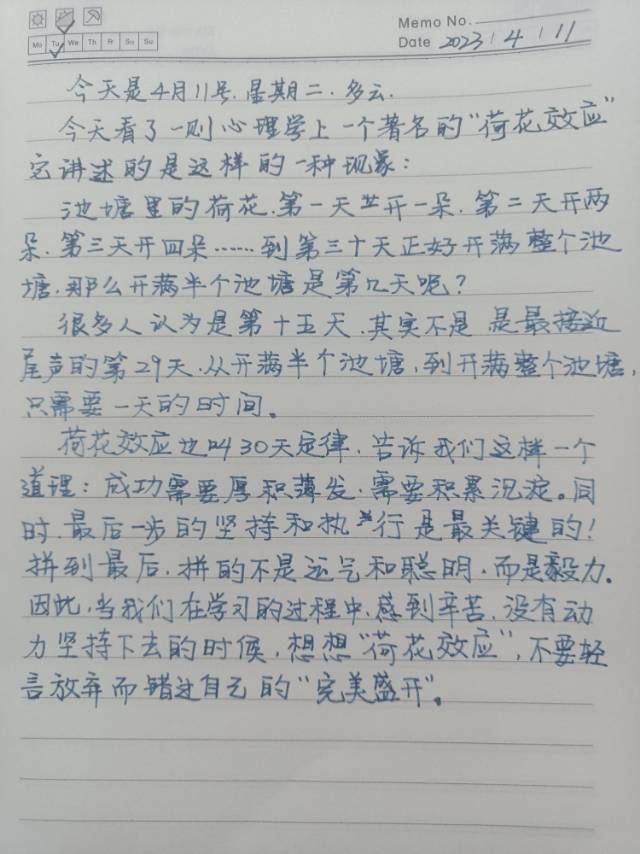 Memo No.
Mo Tu We Th Fr Sa Su
Date 2023 / 4 / 11
今天是4月11号.星期二.多云.
今天看了一则心理学上一个著名的“荷花效应”
它讲述的是这样的一种现象：
池塘里的荷花.第一天开一朵.第二天开两
朵.第三天开四朵……到第三十天正好开满整个池
塘.那么开满半个池塘是第几天呢？
很多人认为是第十五天.其实不是 是最接近
尾声的第29天.从开满半个池塘,到开满整个池塘,
只需要一天的时间。
荷花效应也叫30天定律.告诉我们这样一个
道理：成功需要厚积薄发.需要积累沉淀。同
时.最后一步的坚持和执行是最关键的！
拼到最后.拼的不是运气和聪明.而是毅力.
因此,当我们在学习的过程中.感到辛苦.没有动
力坚持下去的时候,想想“荷花效应”,不要轻
言放弃而错过自己的“完美盛开”。